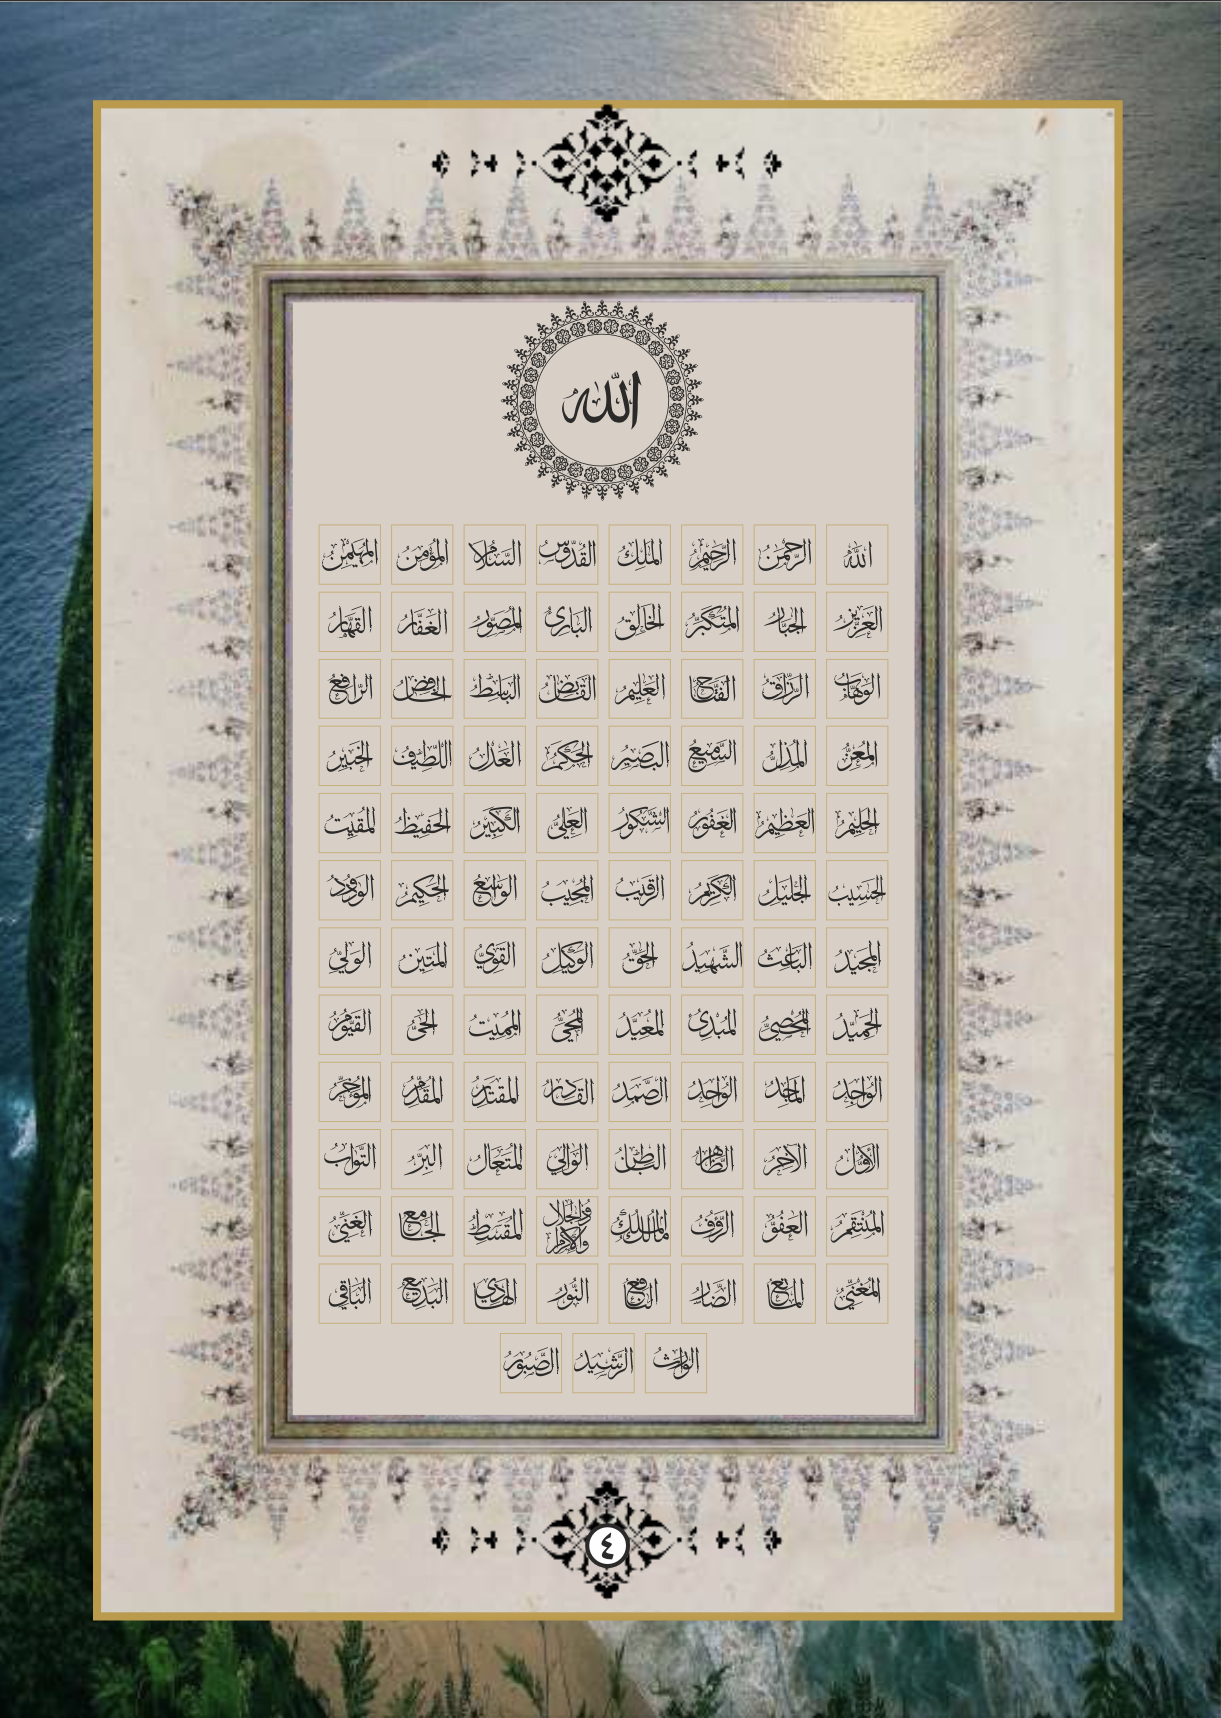 الله
الله الرحمن الرحيم الملك القدوس السلام المؤمن المهيمن
العزيز الجبار المتكبر الخالق البارئ المصور الغفار القهار
الوهاب الرزاق الفتاح العليم القابض الباسط الخافض الرافع
المعز المذل السميع البصير الحكم العدل اللطيف الخبير
الحليم العظيم الغفور الشكور العلي الكبير الحفيظ المقيت
الحسيب الجليل الكريم الرقيب المجيب الواسع الحكيم الودود
المجيد الباعث الشهيد الحق الوكيل القوي المتين الولي
الحميد المحصي المبدئ المعيد المحيي المميت الحي القيوم
الواجد الماجد الواحد الصمد القادر المقتدر المقدم المؤخر
الأول الآخر الظاهر الباطن الوالي المتعال البر التواب
المنتقم العفو الرؤف مالك الملك ذو الجلال والاكرام المقسط الجامع الغني
المغني المانع الضار النافع النور الهادي البديع الباقي
الوارث الرشيد الصبور
٤